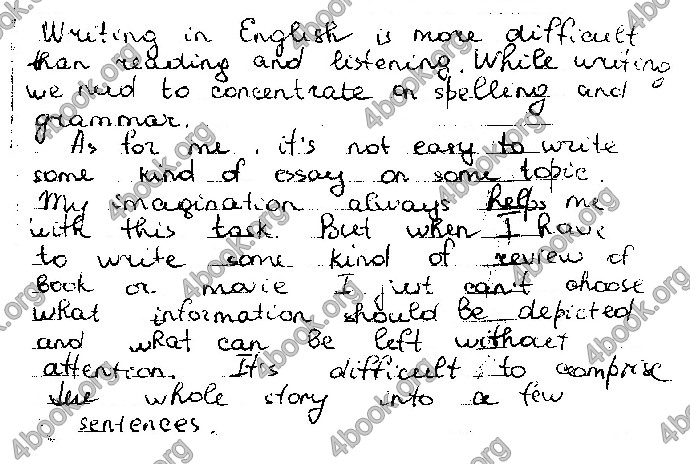 Writing in English is more difficult
than reading and listening. While writing
we need to concentrate on spelling and
grammar.
As for me, it's not easy to write
some kind of essay on some topic.
My imagination always helps me
with this task. But when I have
to write some kind of review of
book or movie I just can't choose
what information should be depicted
and what can be left without
attention. It's difficult to comprise
the whole story into a few
sentences.
4book.org